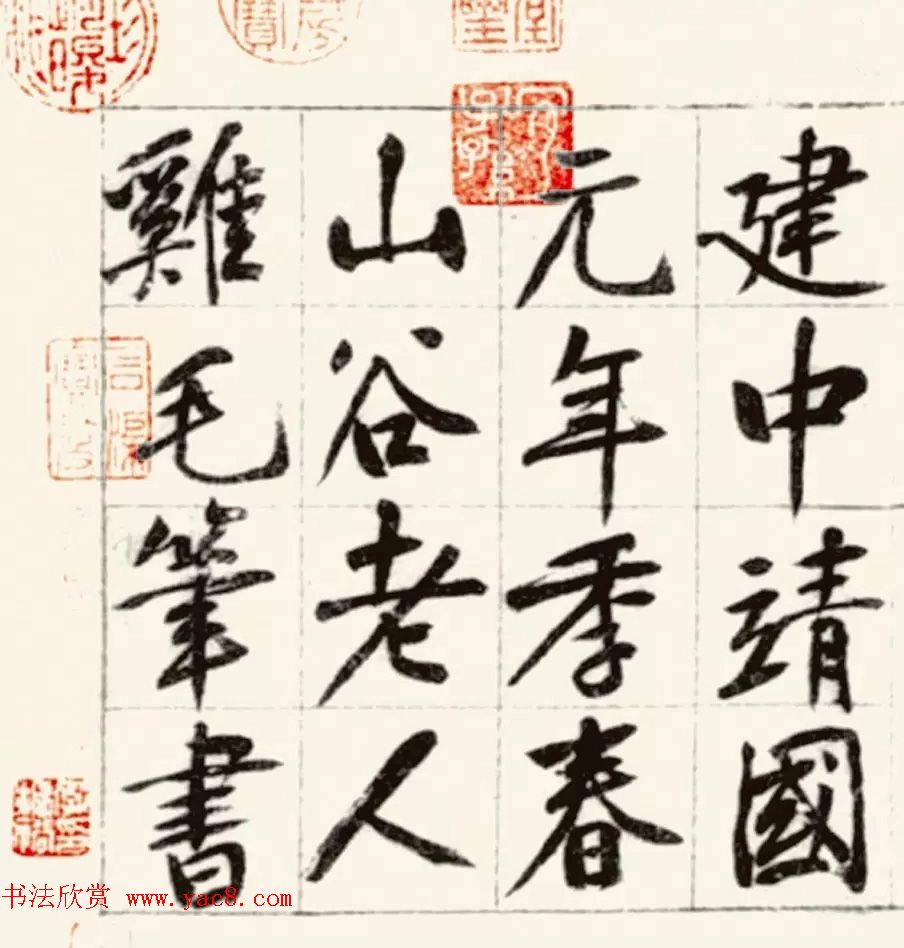 建中靖國
元年季春
山谷老人
雞毛筆書
书法欣赏 www.yac8.com